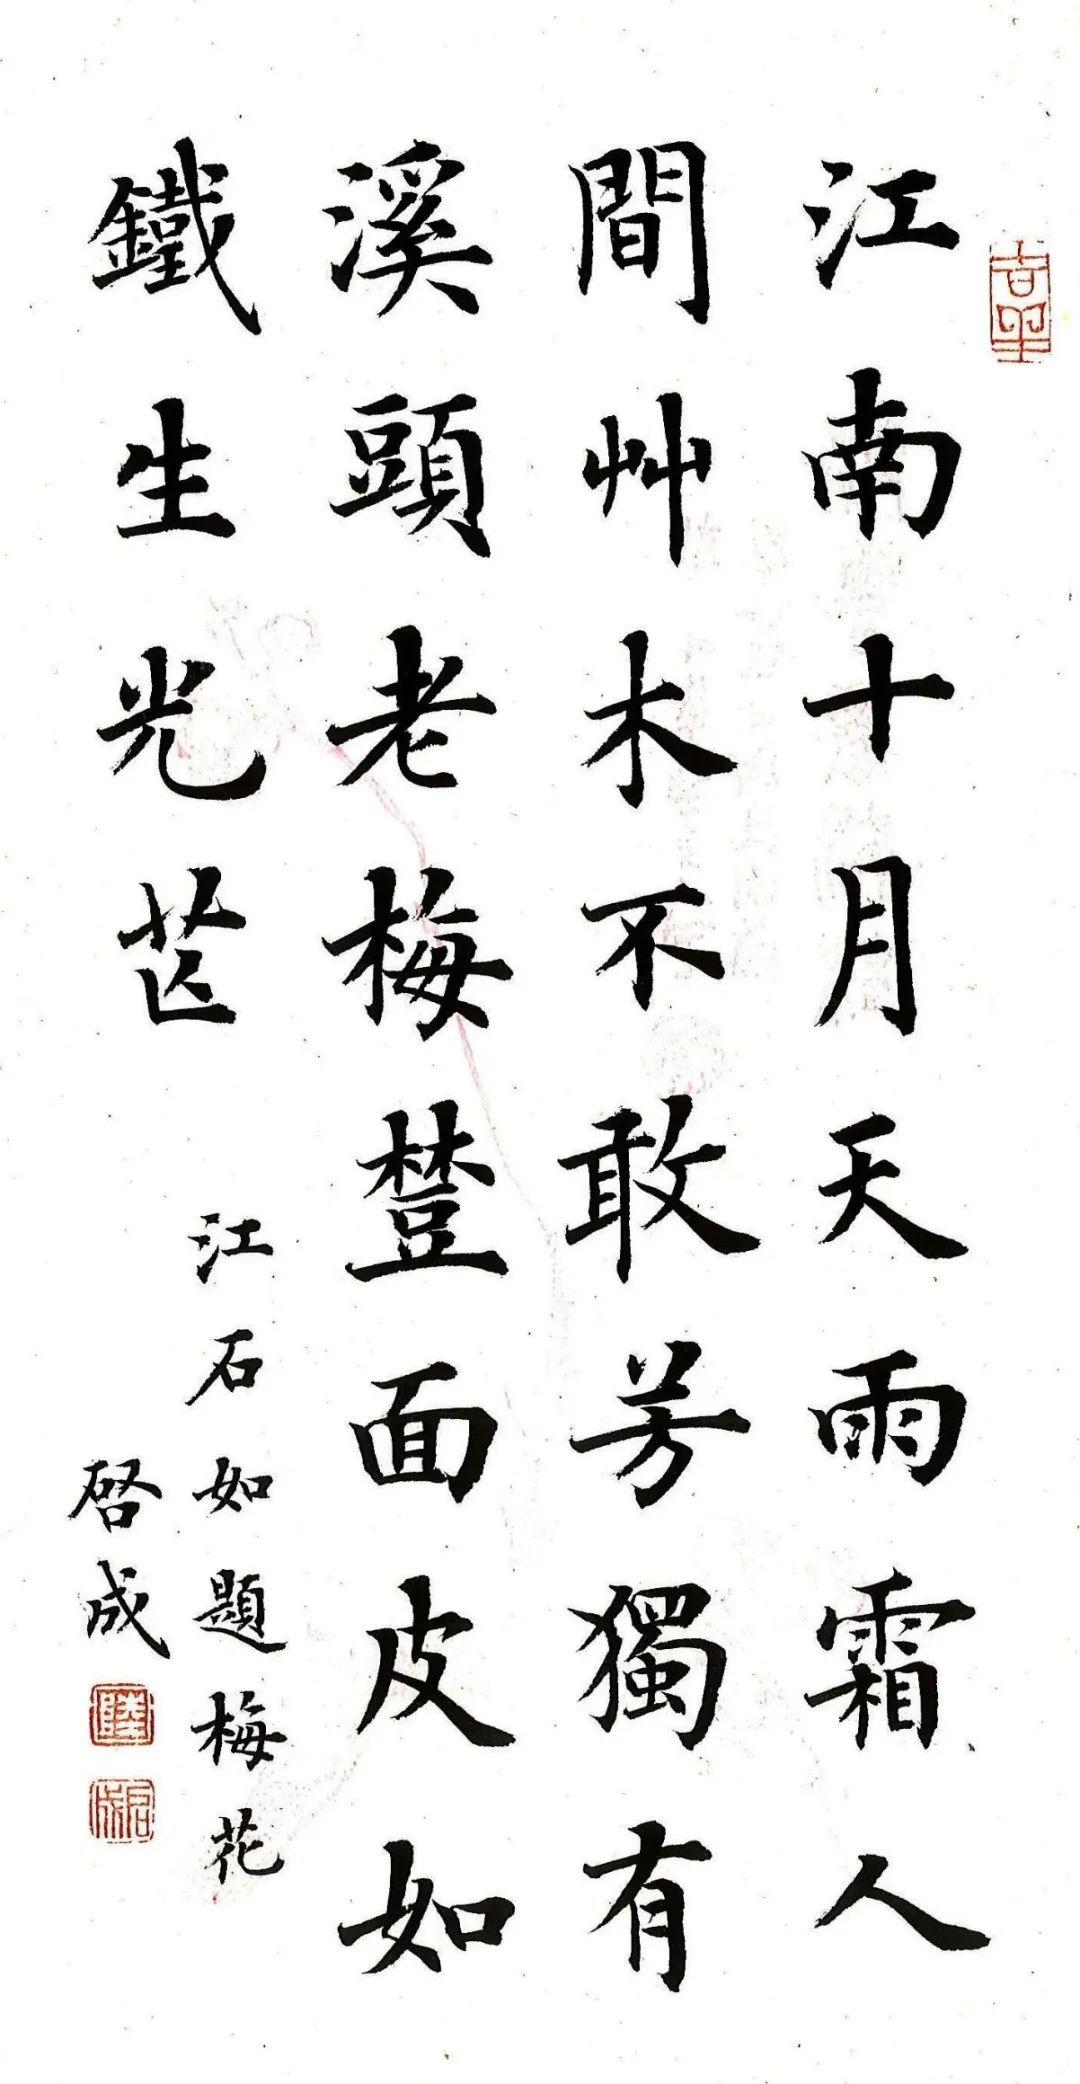 江南十月天雨霜人
間艸木不敢芳獨有
溪頭老梅樹面皮如
鐵生光芒
江石如題梅花
啓成
陸